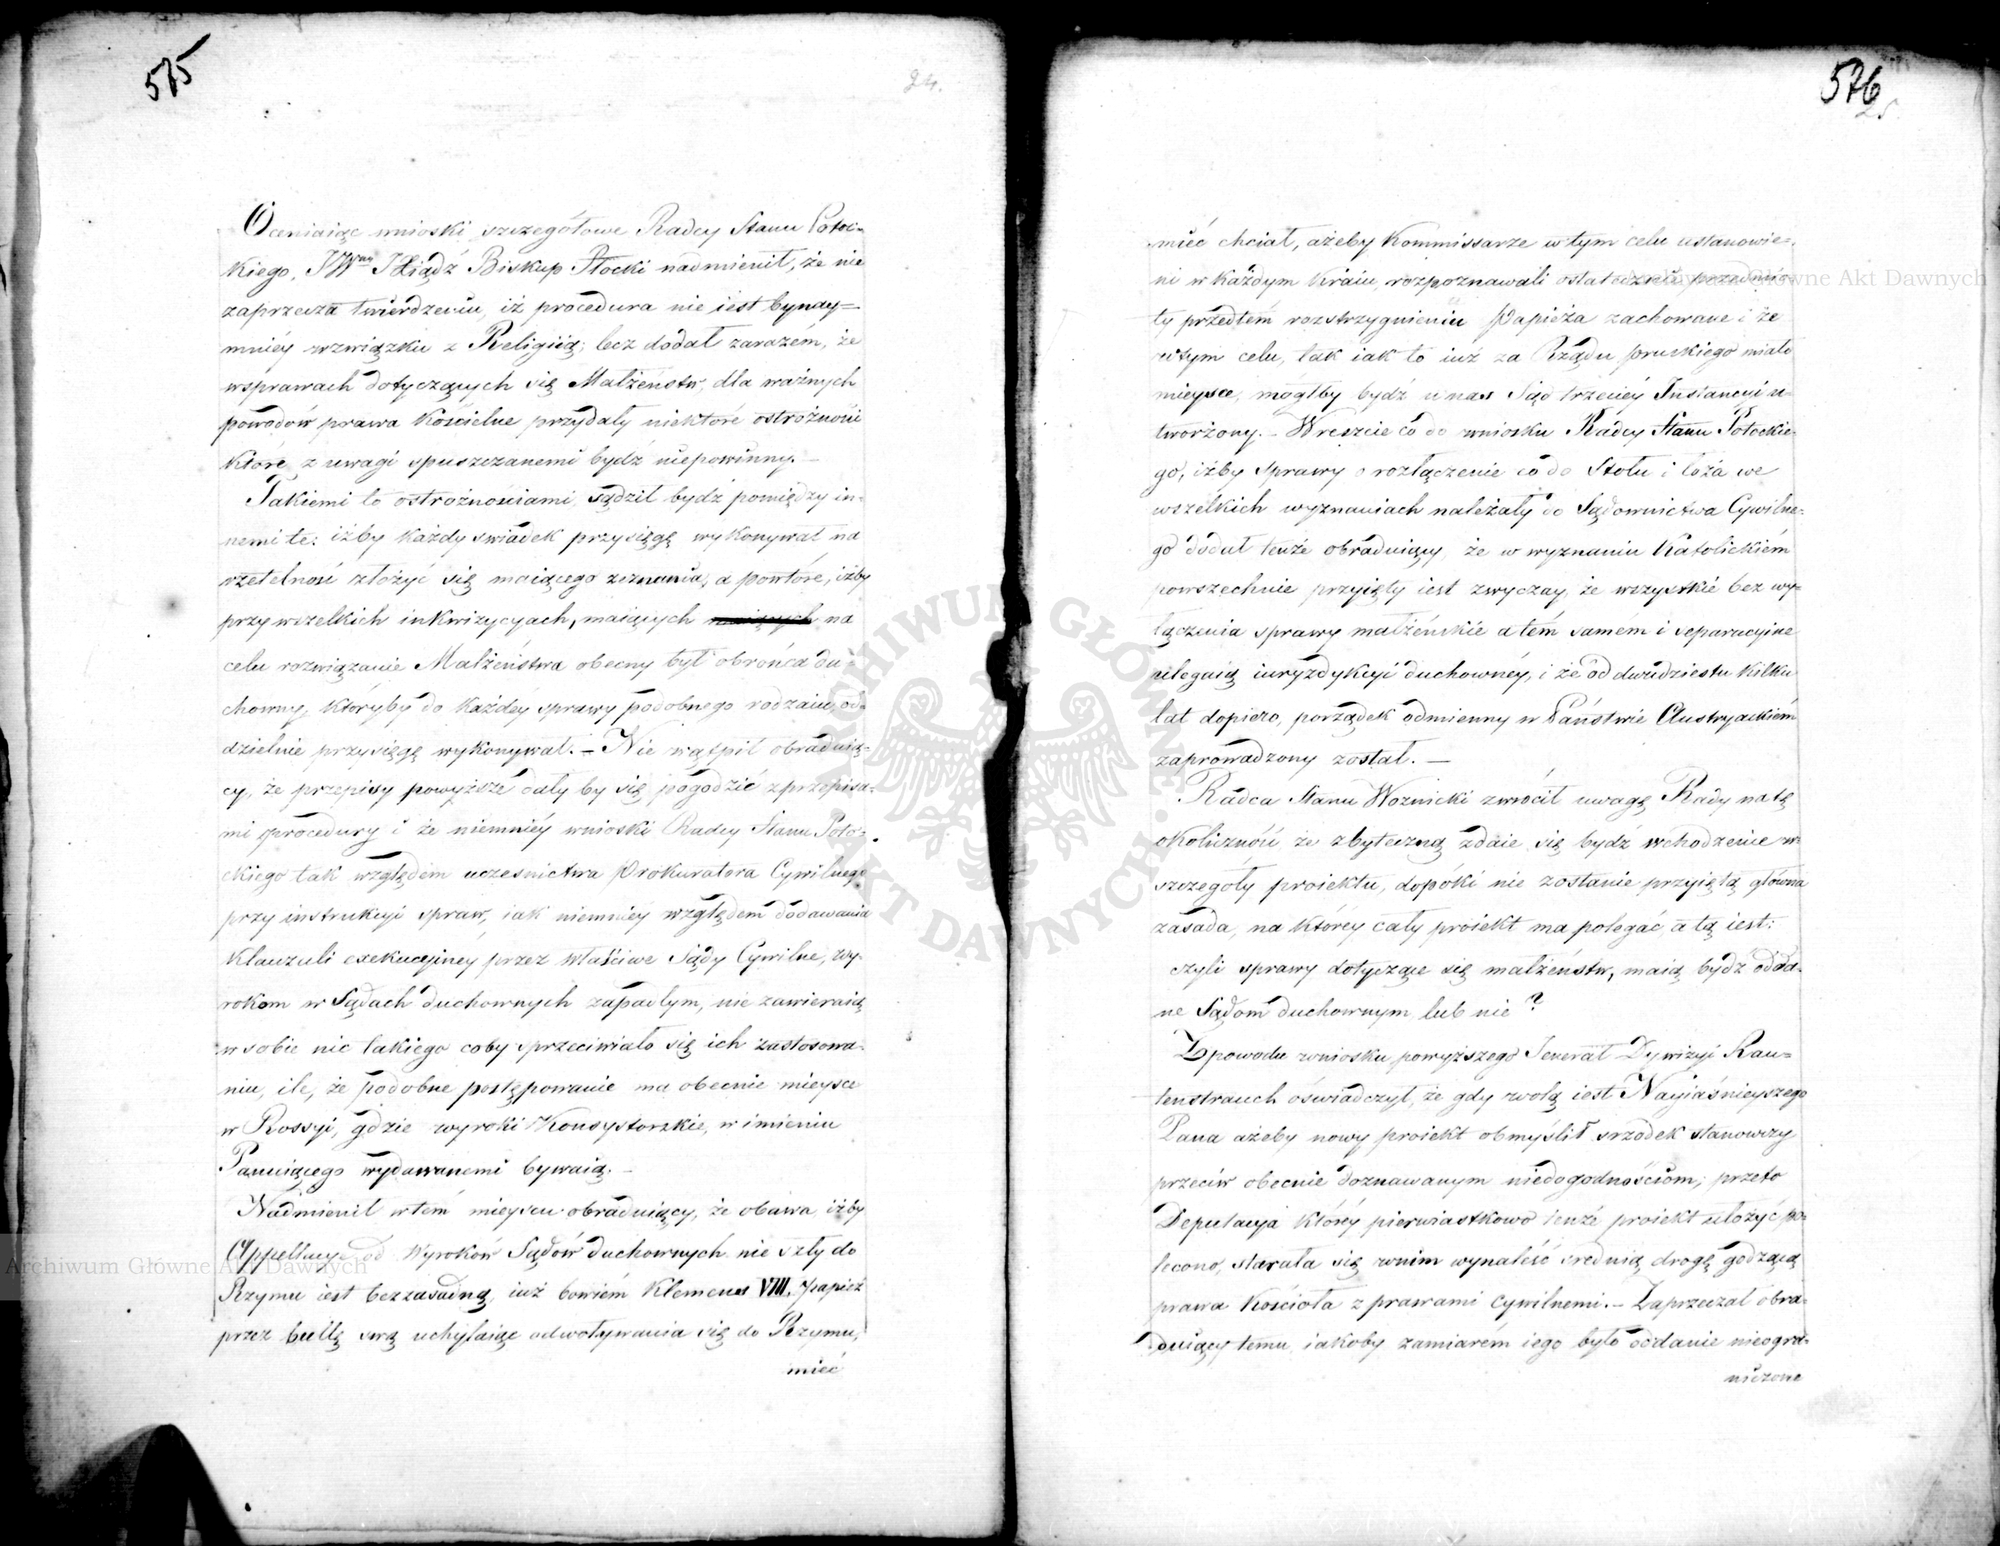 575
24.
Oceniaiąc wnioski szczegółowe Radcy Stanu Potoc-
kiego, JWny JXiądz Biskup Płocki nadmienił, że nie
zaprzecza twierdzeniu, iż procedura nie iest bynay-
mniéy wzwiązku z Religiią; lecz dodał zarazém, że
wsprawach dotyczących się Małżeństw, dla ważnych
powodów prawa Kościelne przydały niektóre ostrożności
które z uwagi spuszczanemi bydź niepowinny. —
Takiemi to ostrożnościami, sądził bydź pomiędzy in-
nemi te: iżby każdy swiadek przysięgę wykonywał na
rzetelność złożyć się maiącego zeznania, a powtóre, iżby
przy wszelkich inkwizycyach, maiących na
celu rozwiązanie Małżeństwa obecny był obrońca du-
chowny, któryby do każdéy sprawy podobnego rodzaiu od-
dzielnie przysięgę wykonywał. — Nie wątpił obraduią-
cy, że przepisy powyższe dały by się pogodzić zprzepisa-
mi procedury i że niemniéy wnioski Radcy Stanu Poto-
ckiego tak względem uczesnictwa Prokuratora Cywilnego
przy instrukcyi spraw, iak niemniéy względem dodawania
klauzuli exekucyiney przez właściwe Sądy Cywilne, wy-
rokom w Sądach duchownych zapadłym, nie zawieraią
w sobie nic takiego coby sprzeciwiało się ich zastosowa-
niu, ile, że podobne postępowanie ma obecnie mieysce
w Rossyi, gdzie wyroki Konsystorskie, w imieniu
Panuiącego wydawanemi bywaią. —
Nadmienił w tém mieyscu obraduiący, że obawa iżby
Appellacye od Wyroków Sądów duchownych nie szły do
Rzymu iest bezzasadną, iuż bowiém Klemens VIII. Papież
przez bullę swą uchylaiąc odwoływania się do Rzymu,
mieć
576
25.
mieć chciał, ażeby Kommissarze w tym celu ustanowie-
ni w każdym kraiu, rozpoznawali ostatecznie przedmio-
ty przedtém rozstrzygnieniu Papieża zachowane i że
wtym celu, tak iak to iuż za Rządu pruskiego miało
mieysce, mógłby bydź u nas Sąd trzeciéy Instancyi u-
tworzony. — Wreszcie co do wniosku Radcy Stanu Potockie-
go, iżby sprawy o rozłączenie co do Stołu i łoża we
wszelkich wyznaniach należały do Sądownictwa Cywilne-
go dodał tenże obraduiący, że w wyznaniu Katolickiém
powszechnie przyięty iest zwyczay, że wszystkie bez wy-
łączenia sprawy małżeńskie a tém samem i separacyine
ulegaią iuryzdykcyi duchownéy, i że od dwudziestu kilku
lat dopiero, porządek odmienny w Państwie Austryackiém
zaprowadzony został. —
Radca Stanu Woznicki zwrócił uwagę Rady na tę
okoliczność że zbyteczną zdaie się bydź wchodzenie w
szczegóły proiektu, dopóki nie zostanie przyiętą główna
zasada, na któréy cały proiekt ma polegać, a tą iest:
czyli sprawy dotyczące się małżeństw, maią bydź odda-
ne Sądom duchownym lub nie?
Z powodu wniosku powyższego Jenerał Dywizyi Rau-
tenstrauch oświadczył, że gdy wolą iest Nayiaśnieyszego
Pana ażeby nowy proiekt obmyślił srzodek stanowczy
przeciw obecnie doznawanym niedogodnościom; przeto
Deputacya któréy pierwiastkowo tenże proiekt ułożyć po-
lecono, starała się wnim wynaleść srednią drogę godzącą
prawa Kościoła z prawami cywilnemi. — Zaprzeczał obra-
duiący temu iakoby zamiarém iego było oddanie nieogra-
niczone